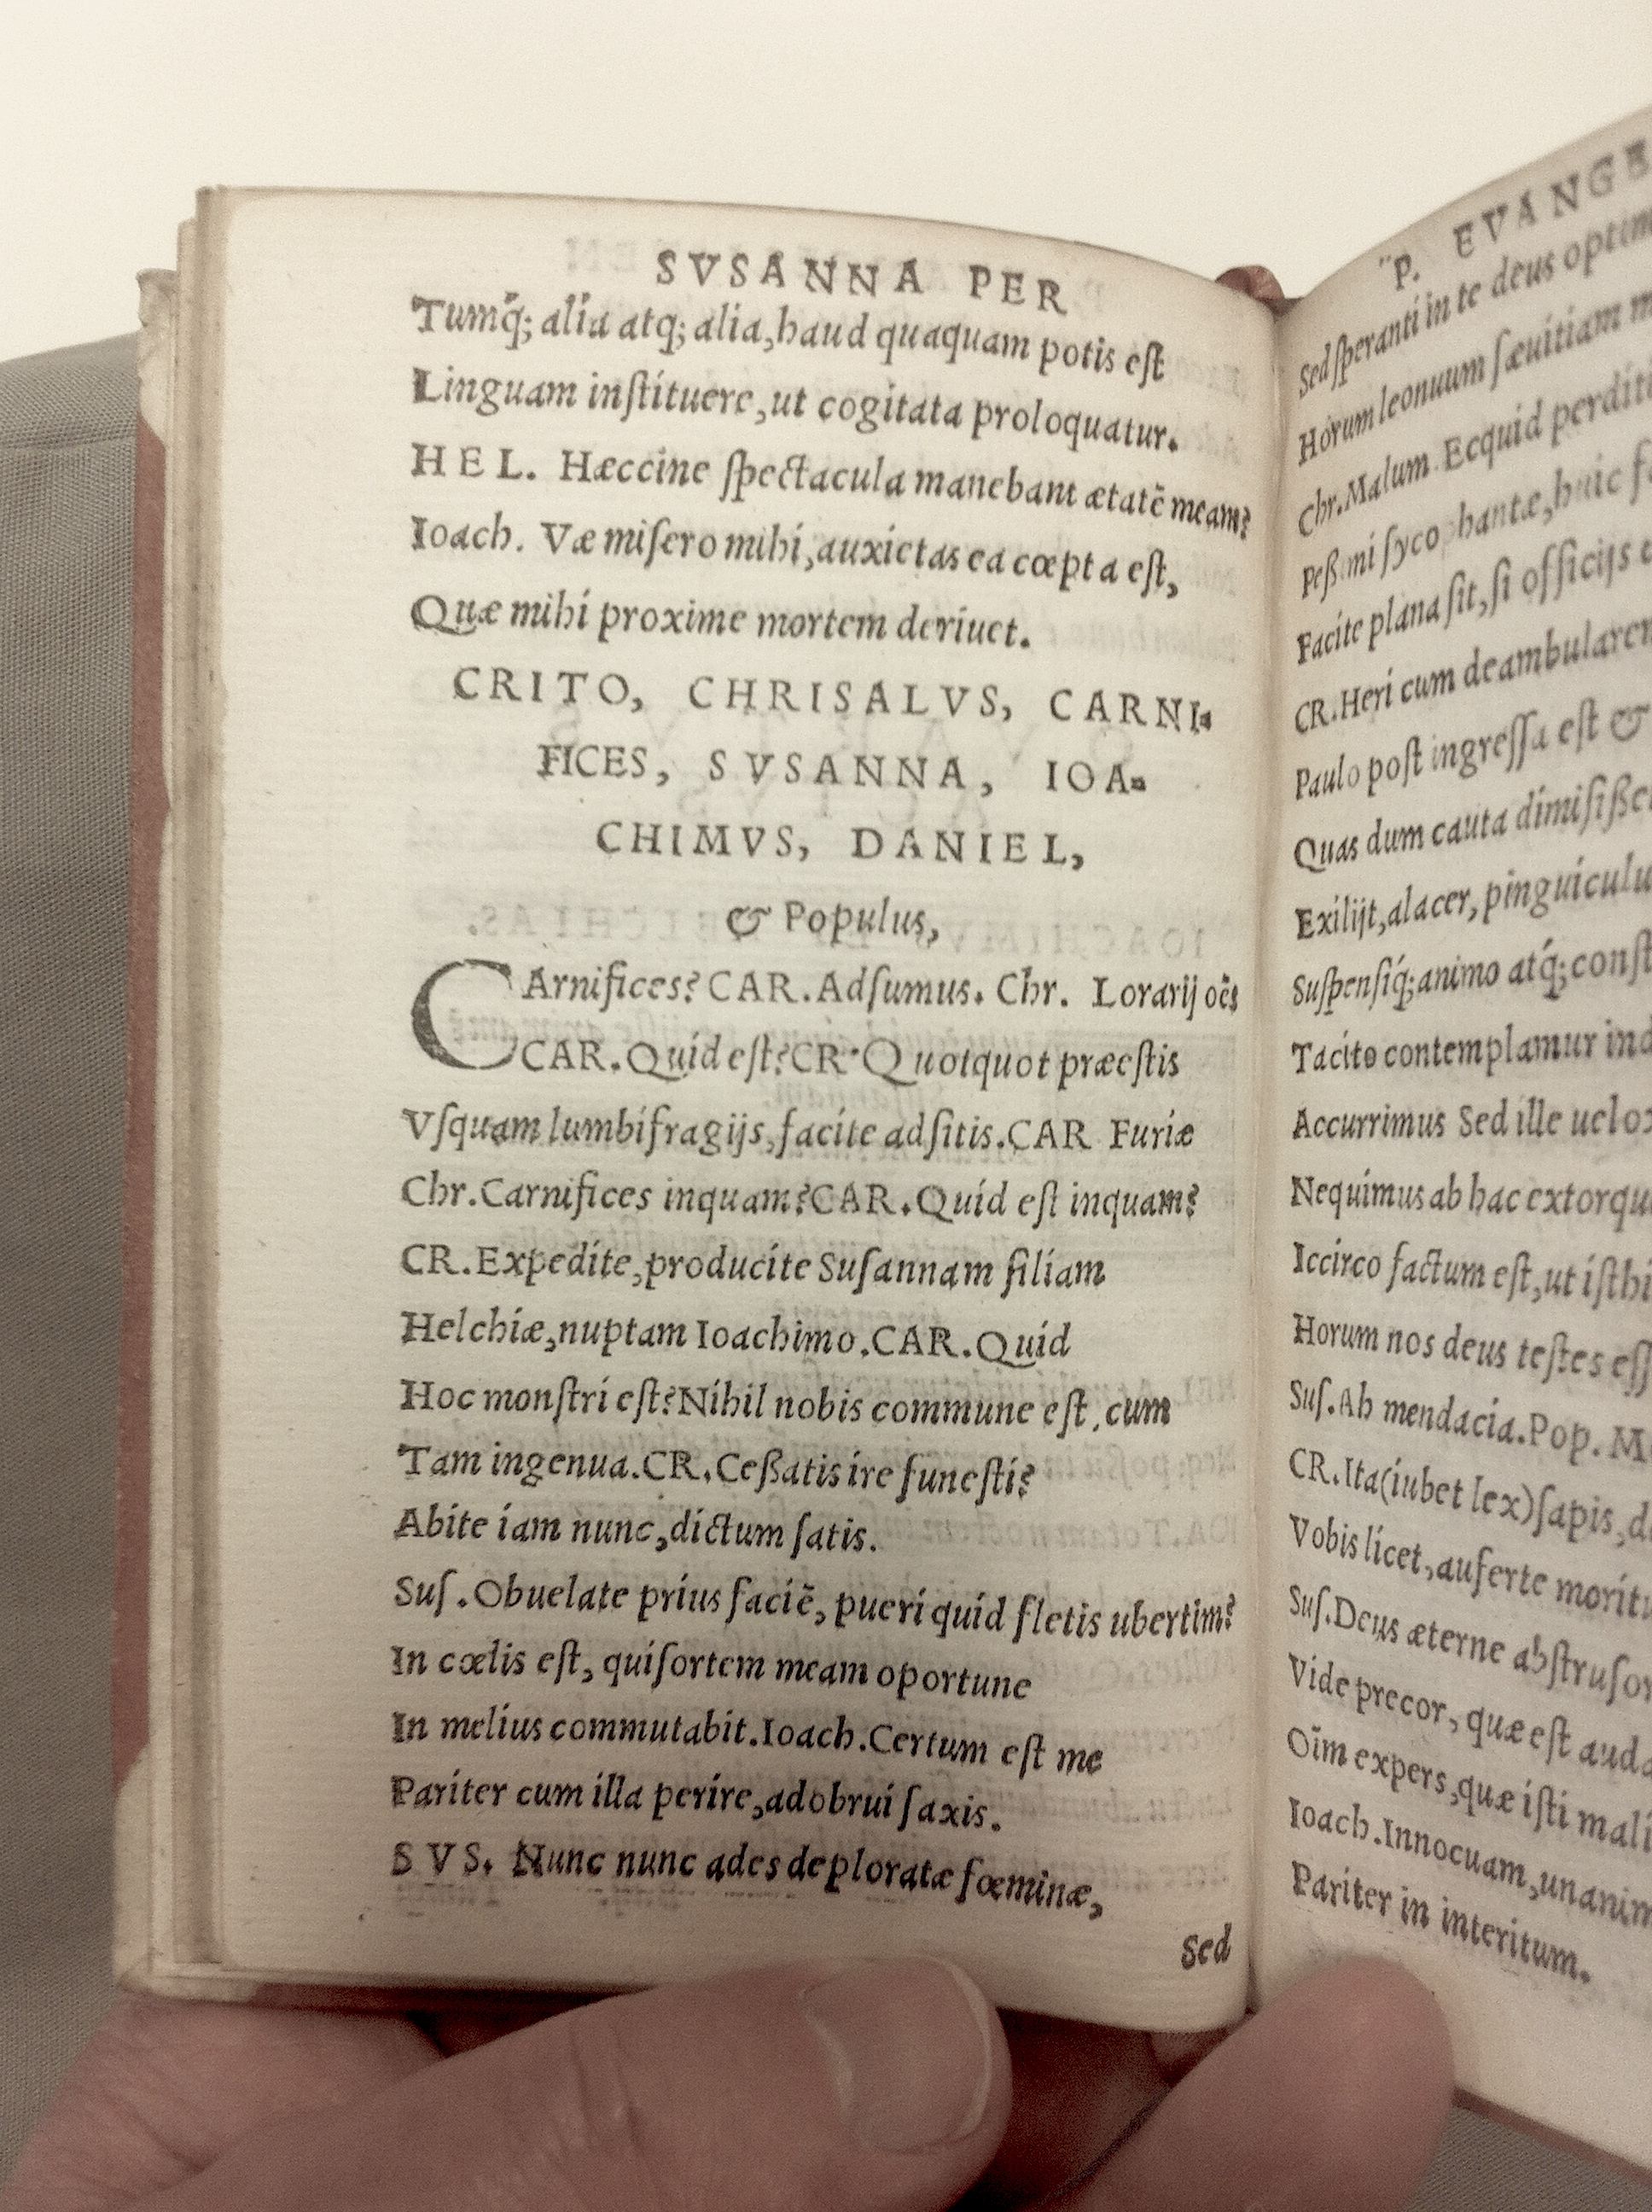 SVSANNA PER
Tumq́; alia atq; alia, haud quaquam potis eſt
Linguam inſtituere, ut cogitata proloquatur.
HEL. Hæccine ſpectacula manebant ætatē meam?
Ioach. Væ miſero mihi, auxietas ea cœpta eſt,
Quæ mihi proxime mortem deriuet.
CRITO, CHRISALVS, CARNI-
FICES, SVSANNA, IOA-
CHIMVS, DANIEL,
& Populus,
CArnifices? CAR. Adſumus. Chr. Lorarij oēs
CAR. Quid eſt? CR. Quotquot præeſtis
Vſquam lumbifragijs, facite adſitis. CAR Furiæ
Chr. Carnifices inquam? CAR. Quid eſt inquam?
CR. Expedite, producite Suſannam filiam
Helchiæ, nuptam Ioachimo. CAR. Quid
Hoc monſtri eſt? Nihil nobis commune eſt, cum
Tam ingenua. CR. Ceßatis ire funeſti?
Abite iam nunc, dictum ſatis.
Suſ. Obuelate prius faciē, pueri quid fletis ubertim?
In cœlis eſt, qui ſortem meam oportune
In melius commutabit. Ioach. Certum eſt me
Pariter cum illa perire, adobrui ſaxis.
SVS. Nunc nunc ades deploratæ fœminæ,
Sed
P. EVANGE
Sed ſperanti in te deus optim
Horum leonuum ſæuitiam
Chr. Malum. Ecquid perditi
Peßimi ſycophantæ, huic
Facite plana ſit, ſi officijs
CR. Heri cum deambularem
Paulo poſt ingreſſa eſt &
Quas dum cauta dimiſiße
Exilijt, alacer, pinguiculu
Suſpenſiq́; animo atq́; conſt
Tacito contemplamur ind
Accurrimus Sed ille uelox
Nequimus ab hac extorqu
Iccirco factum eſt, ut iſthi
Horum nos deus teſtes eſſ
Suſ. Ah mendacia. Pop. M
CR. Ita (iubet lex) ſapis, d
Vobis licet, auferte moritu
Suſ. Deus æterne abſtruſor
Vide precor, quæ eſt auda
Oīm expers, quæ iſti mali
Ioach. Innocuam, unanim
Pariter in interitum.